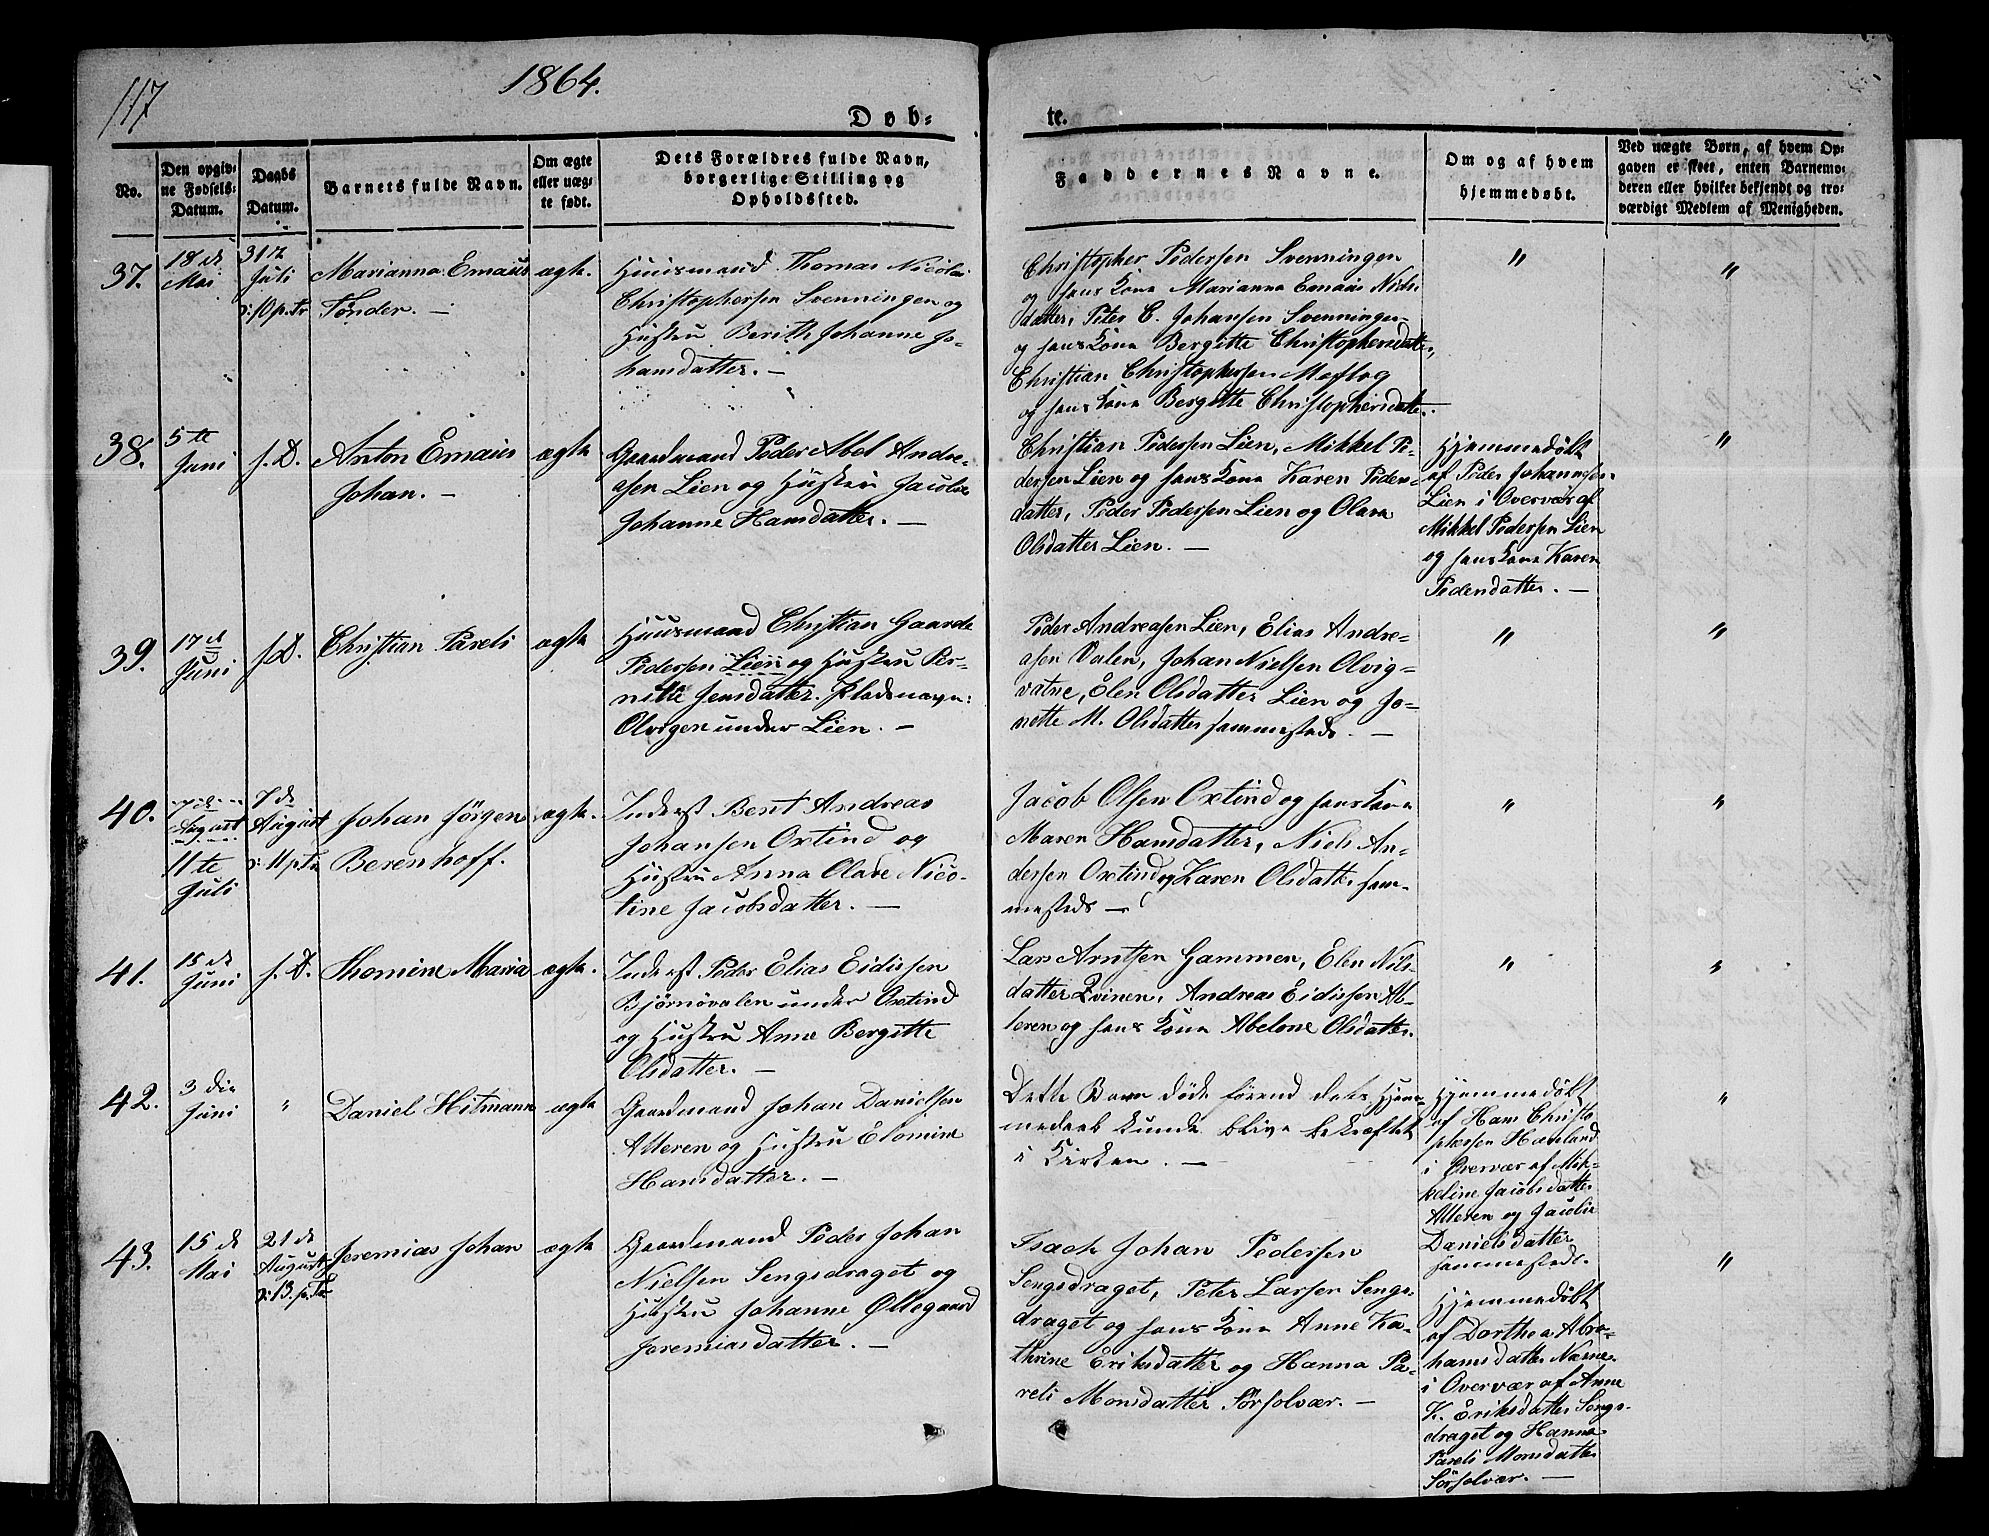 117
1864.
Døb-
te.
No.
Den opgiv-
ne Fødsels-
Datum.
Daabs
Datum.
Barnets fulde Navn.
Om ægte
eller uæg-
te født.
Dets Forældres fulde Navn,
borgerlige Stilling og
Opholdssted.
Faddernes Navne.
Om og af hvem
hjemmedøbt.
Ved uægte Børn, af hvem Op-
gaven er skeet, enten Barnemo-
deren eller hvilket bekjendt og tro-
værdigt Medlem af Menigheden.
37.
18de
Mai
31te
Juli
10 p. Tr
Marianna Emaus
Tønder. —
ægte.
Huusmand Thomas Nicolai
Christophersen Svenningen og
Hustru Berith Johanne Jo-
hansdatter. —
Christopher Pedersen Svenningen
og hans Kone Marianna Emaus Niels
datter, Peter C. Johansen Svenningen
og hans Kone Bergitte Christophersdatter,
Christian Christophersen
og hans Kone Bergitte Christophersdatter. —
"
"
38.
5te
Juni
s. D.
Anton Emaus
Johan. —
ægte
Gaardmand Peder Abel Andre-
asen Lien og Hustru Jacobine
Johanne Hansdatter. —
Christian Pedersen Lien, Mikkel Pe-
dersen Lien og hans Kone Karen Peders-
datter, Peder Pedersen Lien og Olava
Olsdatter Lien. —
Hjemmedøbt
af Peder Johannesen
Lien i Overvær af
Mikkel Pedersen Lien
og hans Kone Karen
Pedersdatter. —
"
39.
17de
Juni
s. D.
Christian Pareli
ægte
Huusmand Christian Gaarde
Pedersen Lien og Hustru Per-
nille Jensdatter. Pladsnavn:
Olvigen under Lien. —
Peder Andreasen Lien, Elias Andre-
asen Valen, Johan Nielsen Olvig-
vatne, Elen Olsdatter Lien og Jo-
nette M. Olsdatter sammesteds. —
"
"
40.
7de
August
11te
Juli
7de
August
11 p. Tr
Johan Jörgen
Berenhoff.
ægte.
Inderst Bent Andreas
Johansen Oxtind og
Hustru Anna Olave Nico-
line Jacobsdatter. —
Jacob Olsen Oxtind og hans Kone
Maren Hansdatter, Niels An-
dersen Oxtind og Karen Olsdatter sam-
mesteds —
"
"
41.
15de
Juni
s. D.
Thomine Maria
ægte.
Inderst Peder Elias Eidissen
Bjørnøvalen under Oxtind
og Hustru Anne Bergitte
Olsdatter. —
Lars Arntsen Hammen, Elen Nils-
datter Kvinen, Andreas Eidissen Al-
teren og hans Kone Abelone Olsdatter.
"
"
42.
3die
Juni
"
Daniel Hitmann
ægte
Gaardmand Johan Danielsen
Alteren og Hustru Elomine
Hansdatter. —
Dette Barn døde førend dets Hjem-
medaab kunde blive bekræftet
i Kirken. —
Hjemmedøbt
af Hans Christo
phersen Haaland
i Overvær af Mik-
keline Jacobsdatter
Alteren og Jacobine
Danielsdatter
sammesteds.
"
43.
15de
Mai
21de
August
13. p. Tr
Jeremias Johan
ægte
Gaardmand Peder Johan
Nielsen Sengsdraget og
Hustru Johanne Øllegaard
Jeremiasdatter. —
Isach Johan Pedersen
Sengsdraget, Peter Larsen Sengs-
draget og hans Kone Anne Ka-
thrine Eriksdatter og Hanna Pa-
reli Monsdatter Sørsolvær. —
Hjemmedøbt
af Dorthea Abra-
hamsdatter
i Overvær af Anne
K. Eriksdatter Sengs-
draget og Hanna
Pareli Monsdatter
Sørsolvær. —
"